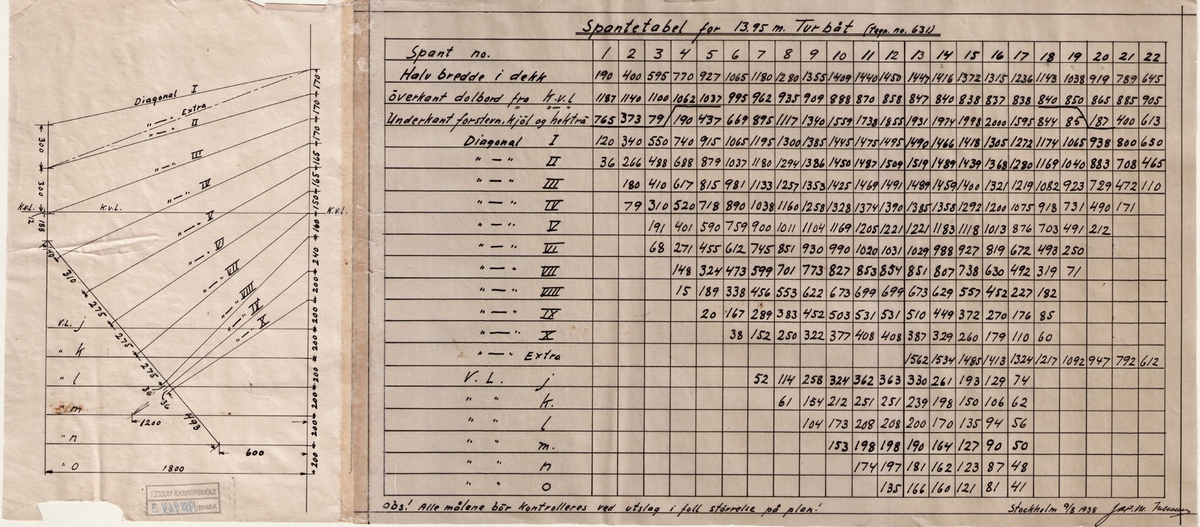 Spantetabel for 13.95 m. Turbåt (tegn. no. 631)
Spant no. 1 2 3 4 5 6 7 8 9 10 11 12 13 14 15 16 17 18 19 20 21 22
Halv bredde i dekk 190 400 595 770 927 1065 1180 1280 1355 1409 1440 1450 1447 1416 1372 1315 1236 1143 1038 919 789 645
överkant dolbord fra K.v.l 1187 1140 1100 1062 1037 995 962 935 909 888 870 858 847 840 838 837 838 840 850 865 885 905
Underkant forstevn, kjöl og hekträ 765 373 79 190 437 669 895 1117 1340 1559 1738 1855 1931 1974 1998 2000 1595 844 85 187 400 613
Diagonal I 120 340 550 740 915 1065 1195 1300 1385 1445 1475 1495 1490 1466 1418 1305 1272 1174 1065 938 800 650
" — " II 36 266 488 688 879 1037 1180 1294 1386 1450 1487 1509 1519 1489 1439 1368 1280 1169 1040 883 708 465
" — " III 180 410 617 815 981 1133 1257 1353 1425 1469 1491 1489 1459 1400 1321 1219 1082 923 729 472 110
" — " IV 79 310 520 718 890 1038 1160 1258 1328 1374 1390 1385 1358 1292 1200 1075 918 731 490 171
" — " V 191 401 590 759 900 1011 1104 1169 1205 1221 1221 1183 1118 1013 876 703 491 212
" — " VI 68 271 455 612 745 851 930 990 1020 1031 1029 988 927 819 672 493 250
" — " VII 148 324 473 599 701 773 827 853 854 851 807 738 630 492 319 71
" — " VIII 15 189 338 456 553 622 673 699 699 673 629 557 452 227 182
" — " IX 20 167 289 383 452 503 531 531 510 449 372 270 176 85
" — " X 38 152 250 322 377 408 408 387 329 260 179 110 60
" — " Extra 1562 1534 1485 1413 1324 1217 1092 947 792 612
V. L. j 52 114 258 324 362 363 330 261 193 129 74
" " k. 61 154 212 251 251 239 198 150 106 62
" " l 104 173 208 208 200 170 135 94 56
" " m. 153 198 198 190 164 127 90 50
" " n 174 197 181 162 123 87 48
" " o 135 166 160 121 81 41
Obs! Alle målene bör kontrolleres ved utslag i full störrelse på plan!
Stockholm 9/8 1938
Diagonal I
" — " Extra
" — " II
" — " III
" — " IV
" — " V
" — " VI
" — " VII
" — " VIII
" — " IX
" — " X
300
300
K.v.l. K.v.L. K.v.l.
12
188
150
310
275
275
275
36
36
493
V.L. j
" k
" l
" m
" n
" o
1200
600
1800
170
170
170
165
165
150
160
240
200
200
200
200
200
200
200
200